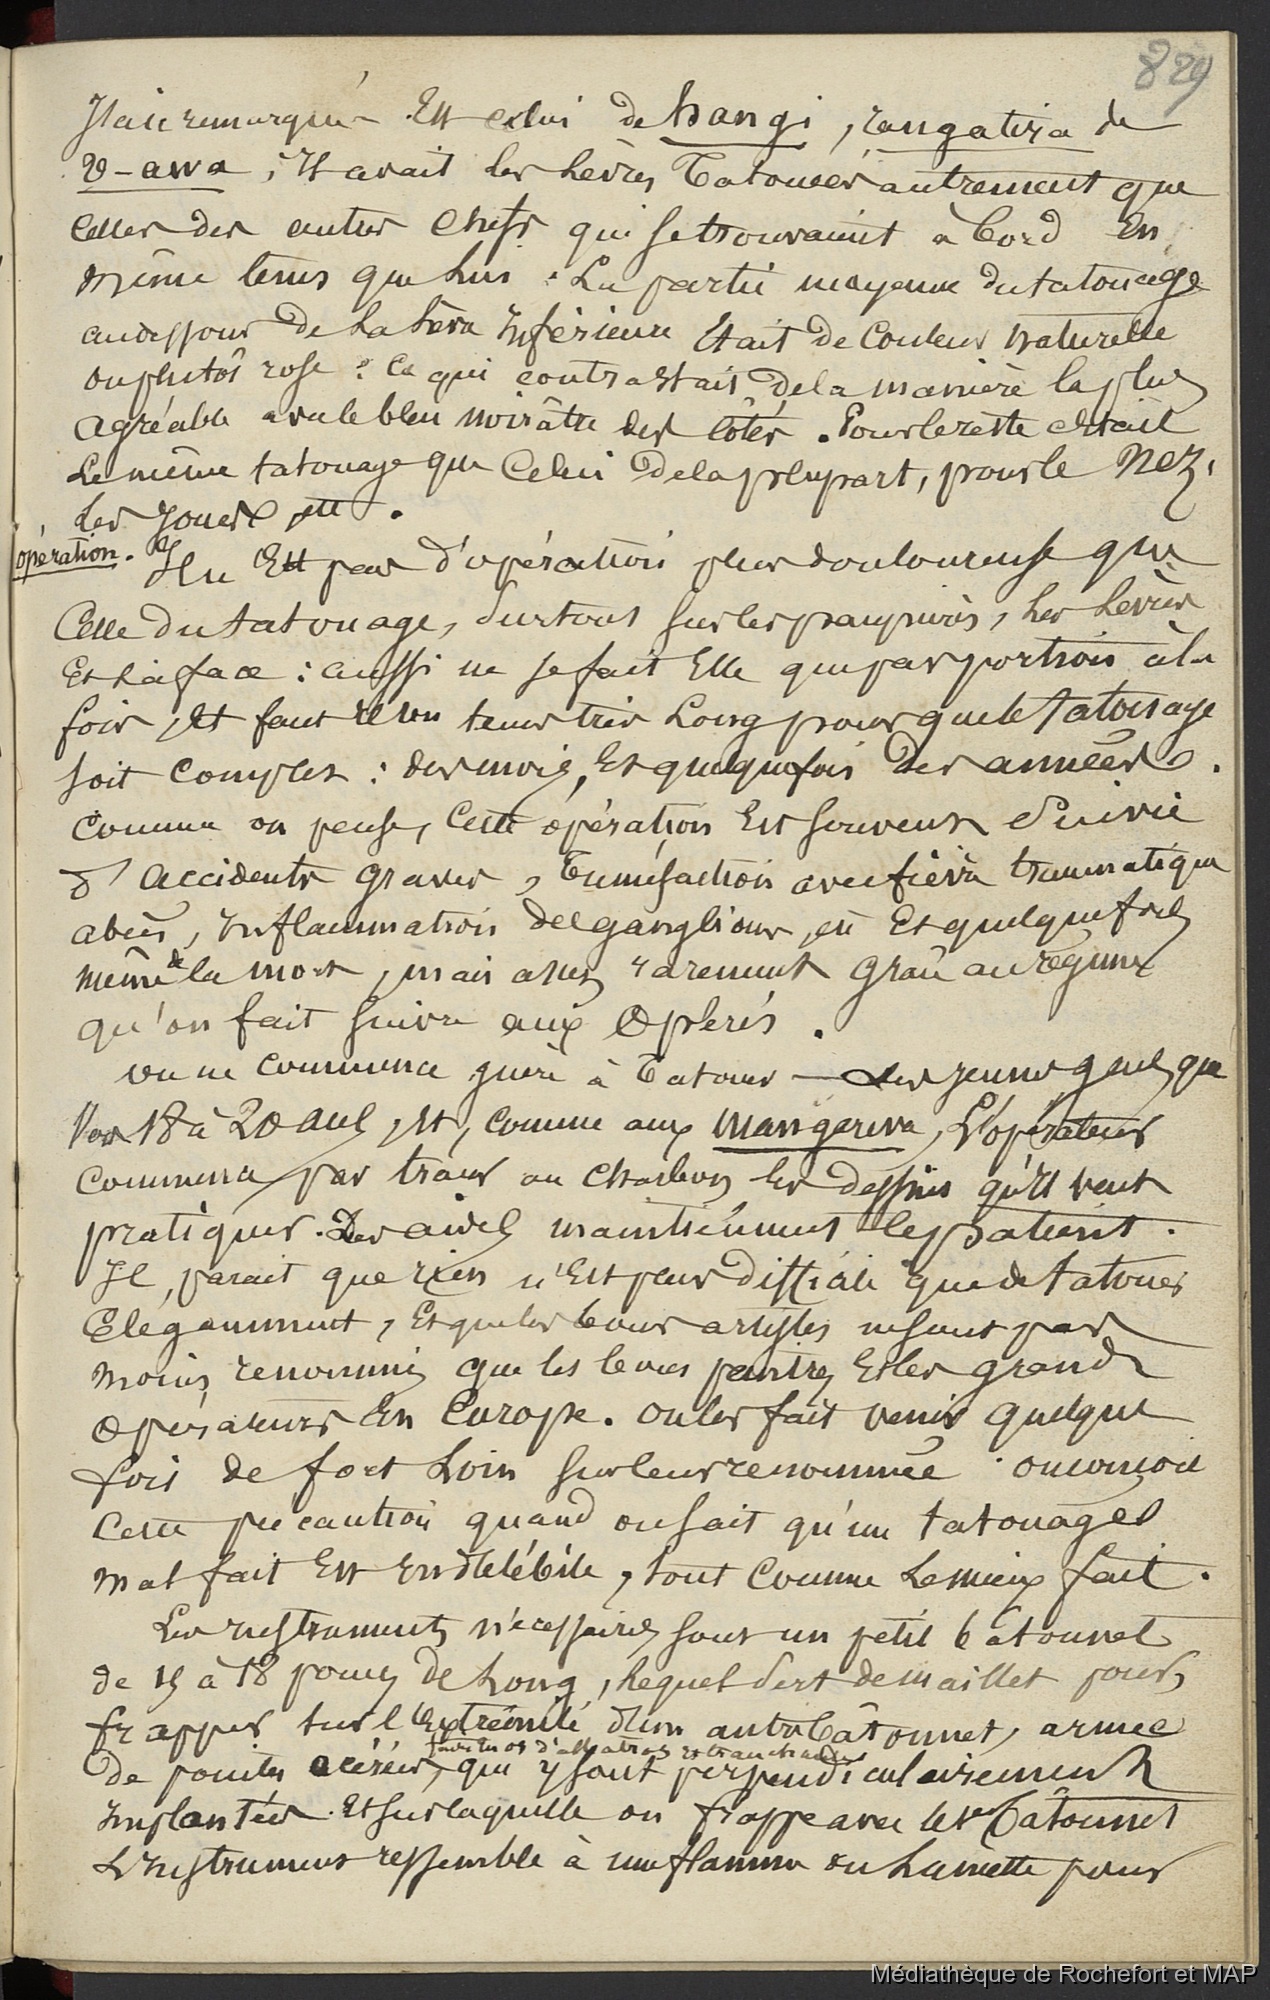 829
J'aie remarqué est celui de hangi, rangatira de
v-awa ; il avait les lèvres tatouées autrement que
celles des autres chefs qui se trouvaient à bord en
même tems que lui. La partie moyenne du tatouage
au dessous de la lèvre inférieure était de couleur naturelle
ou plutôt rose : ce qui contrastait de la manière la plus
agréable avec le bleu noirâtre des côtés. Pour le reste c'était
le même tatouage que celui de la plupart, pour le nez,
les joues, etc.
opération. Il n'est pas d'opération plus douloureuse que
celle du tatouage, surtout sur les paupières, les lèvres
et la face : aussi ne se fait elle que par portions à la
fois, et faut il un tems très long pour que le tatouage
soit complet : des mois, et quelquefois des années.
comme on pense, cette opération est souvent suivie
d'accidents graves, tuméfaction avec fièvre traumatique
abcès, inflammation des ganglions, etc et quelquefois
même de la mort, mais assez rarement grâce au régime
qu'on fait suivre aux opérés.
on ne commence guère à tatouer — les jeunes gens que
vers 18 à 20 ans, et, comme aux mangareva, l'opérateur
commence par tracer au charbon les dessins qu'il veut
pratiquer. Des aides maintiennent le patient.
Il paraît que rien n'est plus difficile que de tatouer
élégamment, et que les bons artistes ne sont pas
moins renommés que les bons peintres et les grands
opérateurs en Europe. on les fait venir quelque
fois de fort loin sur leur renommée. on conçoit
cette précaution quand on sait qu'un tatouage
mal fait est indélébile, tout comme le mieux fait.
Les instruments nécessaires sont un petit bâtonnet
de 15 à 18 pouces de long, lequel sert de maillet pour
frapper sur l'extrémité d'un autre bâtonnet, armée
faites en os d'albatros et tranchantes
de pointes acérées, qui y sont perpendiculairement
implantées. et sur laquelle on frappe avec le 1er bâtonnet
L'instrument ressemble à une flamme ou lancette pour
Médiathèque de Rochefort et MAP